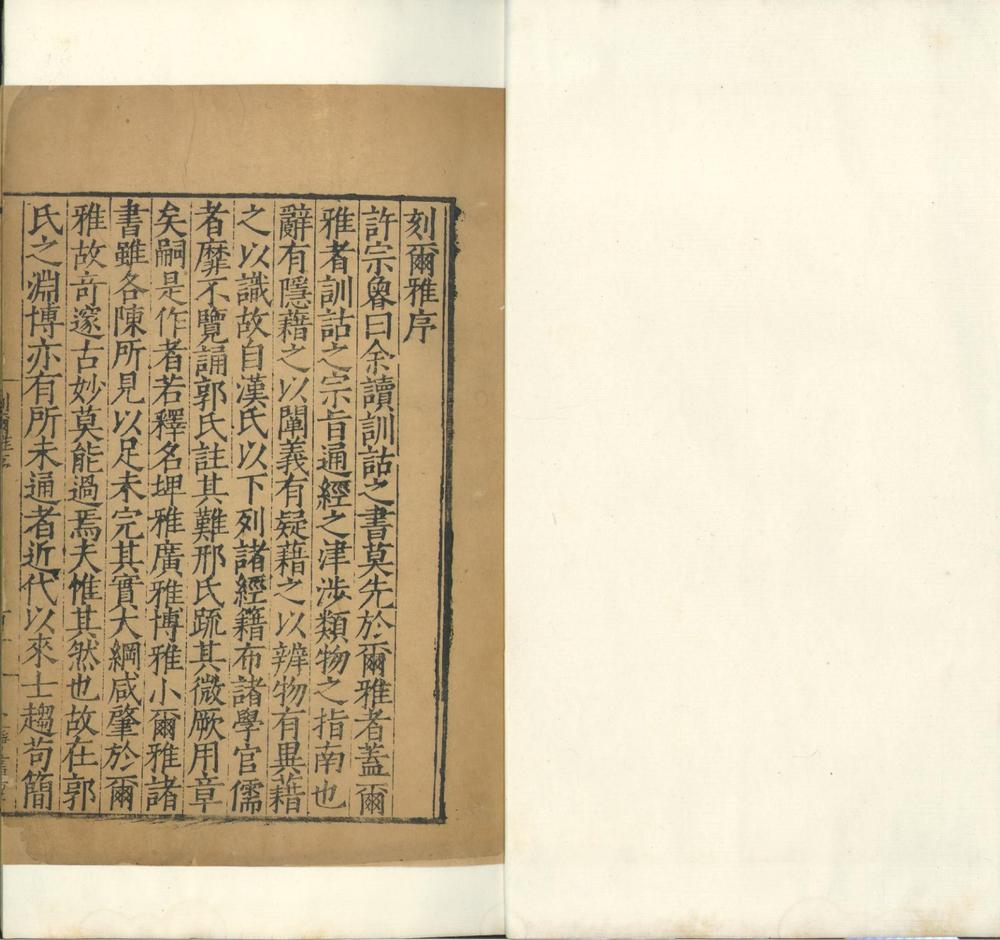 刻爾雅序
許宗魯曰余讀訓詁之書莫先於爾雅者蓋爾
雅者訓詁之宗旨通經之津涉類物之指南也
辭有隱藉之以闡義有疑藉之以辨物有異藉
之以識故自漢氏以下列諸經籍布諸學官儒
者靡不覽誦郭氏註其難邢氏疏其微厥用章
矣嗣是作者若釋名埤雅廣雅博雅小爾雅諸
書雖各陳所見以足未完其實大綱咸肇於爾
雅故奇邃古妙莫能過焉夫惟其然也故在郭
氏之淵博亦有所未通者近代以來士趨苟簡